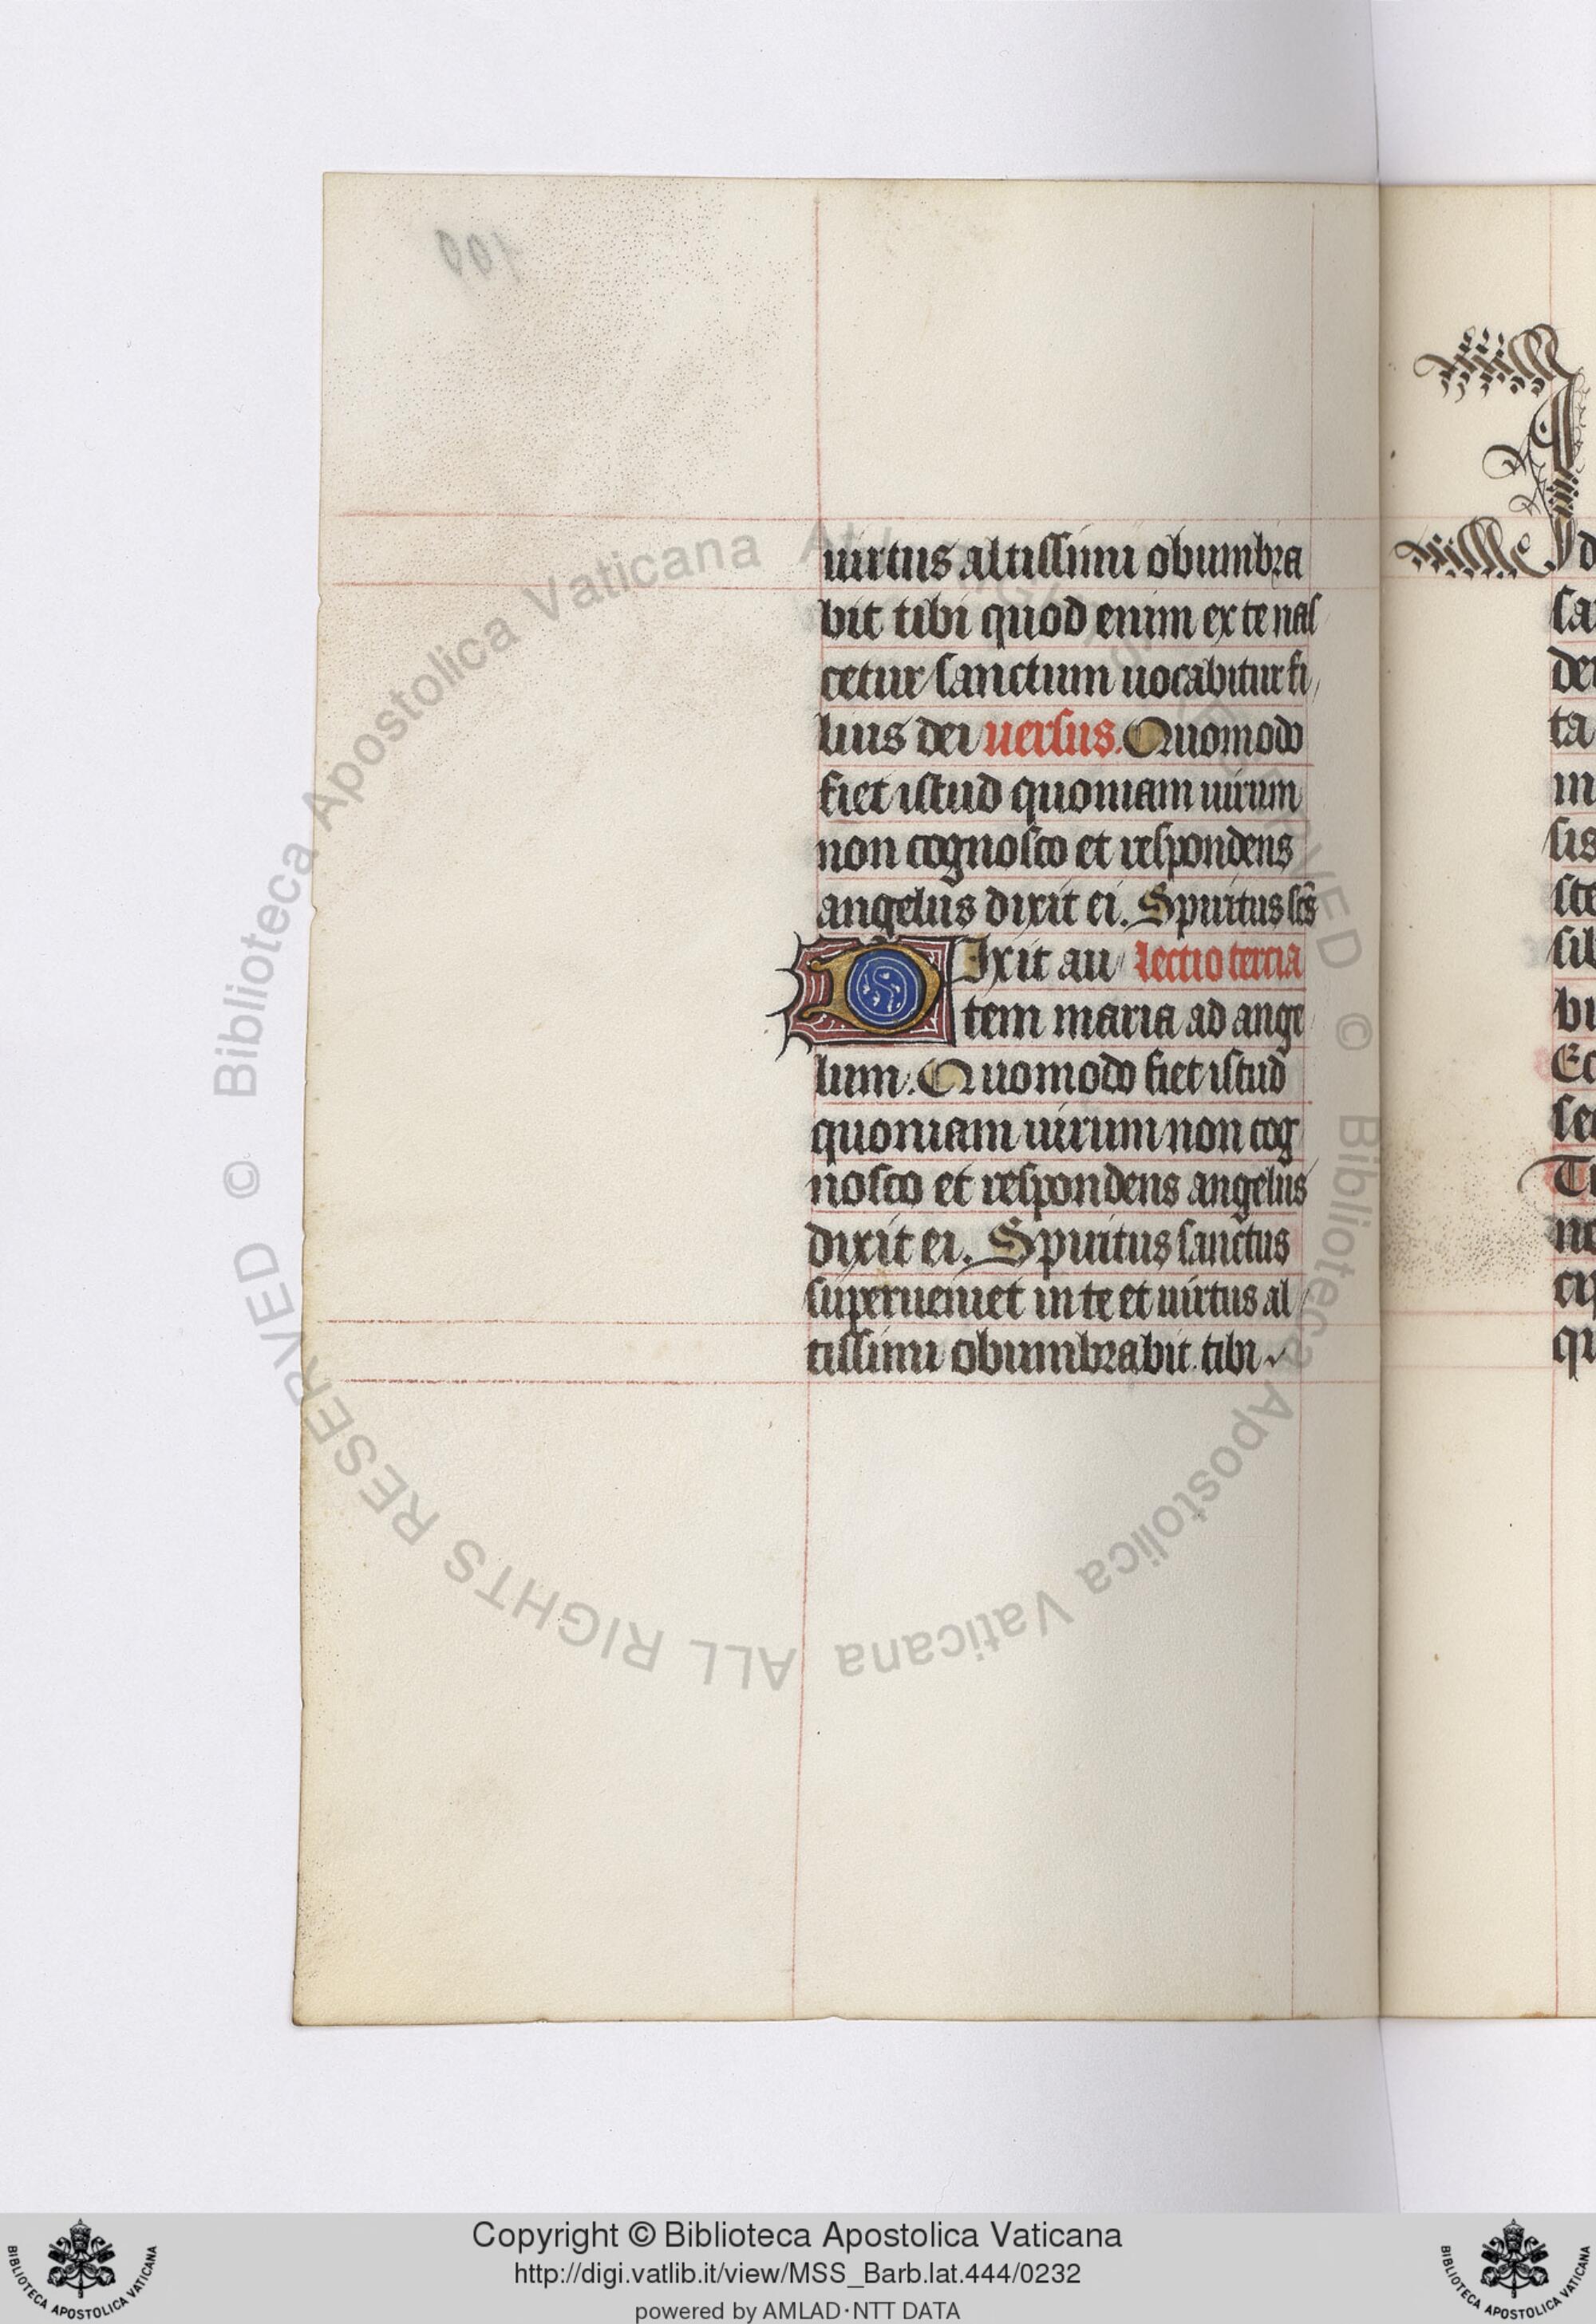 uirtus altissimi obumbra
bit tibi quod enim ex te nas
cetur sanctum uocabitur fi
lius dei uersus. Quomodo
fiet istud quoniam uirum
non cognosco et respondens
angelus dixit ei. Spiritus scs
Dixit au lectio tercia
tem maria ad ange
lum. Quomodo fiet istud
quoniam uirum non cog
nosco et respondens angelus
dixit ei. Spiritus sanctus
superueniet in te et uirtus al
tissimi obumbrabit tibi
© Biblioteca Apostolica Vaticana ALL RIGHTS RESERVED © Biblioteca Apostolica Vaticana ALL RIGHTS RESERVED
Copyright © Biblioteca Apostolica Vaticana
http://digi.vatlib.it/view/MSS_Barb.lat.444/0232
powered by AMLAD·NTT DATA
BIBLIOTECA APOSTOLICA VATICANA
BIBLIOTECA APOSTOLICA VATICANA